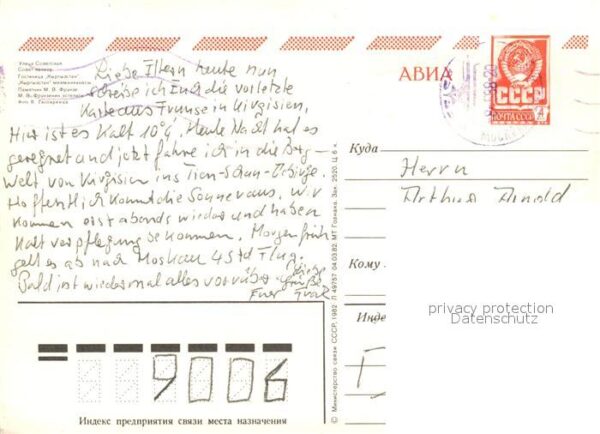 Улица Советская
Гостиница „Кыргызстан"
Памятник М. В. Фрунзе
Liebe Eltern heute nun
schreibe ich Euch die vorletzte
Karte aus Frunse in Kirgisien.
Hier ist es Kalt 10°. Heute Nacht hat es
geregnet und jetzt fahre ich in die Berg-
Welt von Kirgisien ins Tien-Schan-Gebirge.
Hoffentlich kommt die Sonne raus. Wir
kommen erst abends wieder und haben
Kaltverpflegung bekommen. Morgen früh
geht es ab nach Moskau 4 Std Flug.
Bald ist wiedermal alles vorüber
Grüße
Euer
АВИА
СССР
ПОЧТА СССР
Куда
Herrn
Arthur Arnold
Кому
privacy protection
Datenschutz
Инде
9006
Индекс предприятия связи места назначения
© Министерство связи СССР, 1982. Л 49757 04.03.82. МТ Гознака. Зак. 2520. Ц. 6 к.